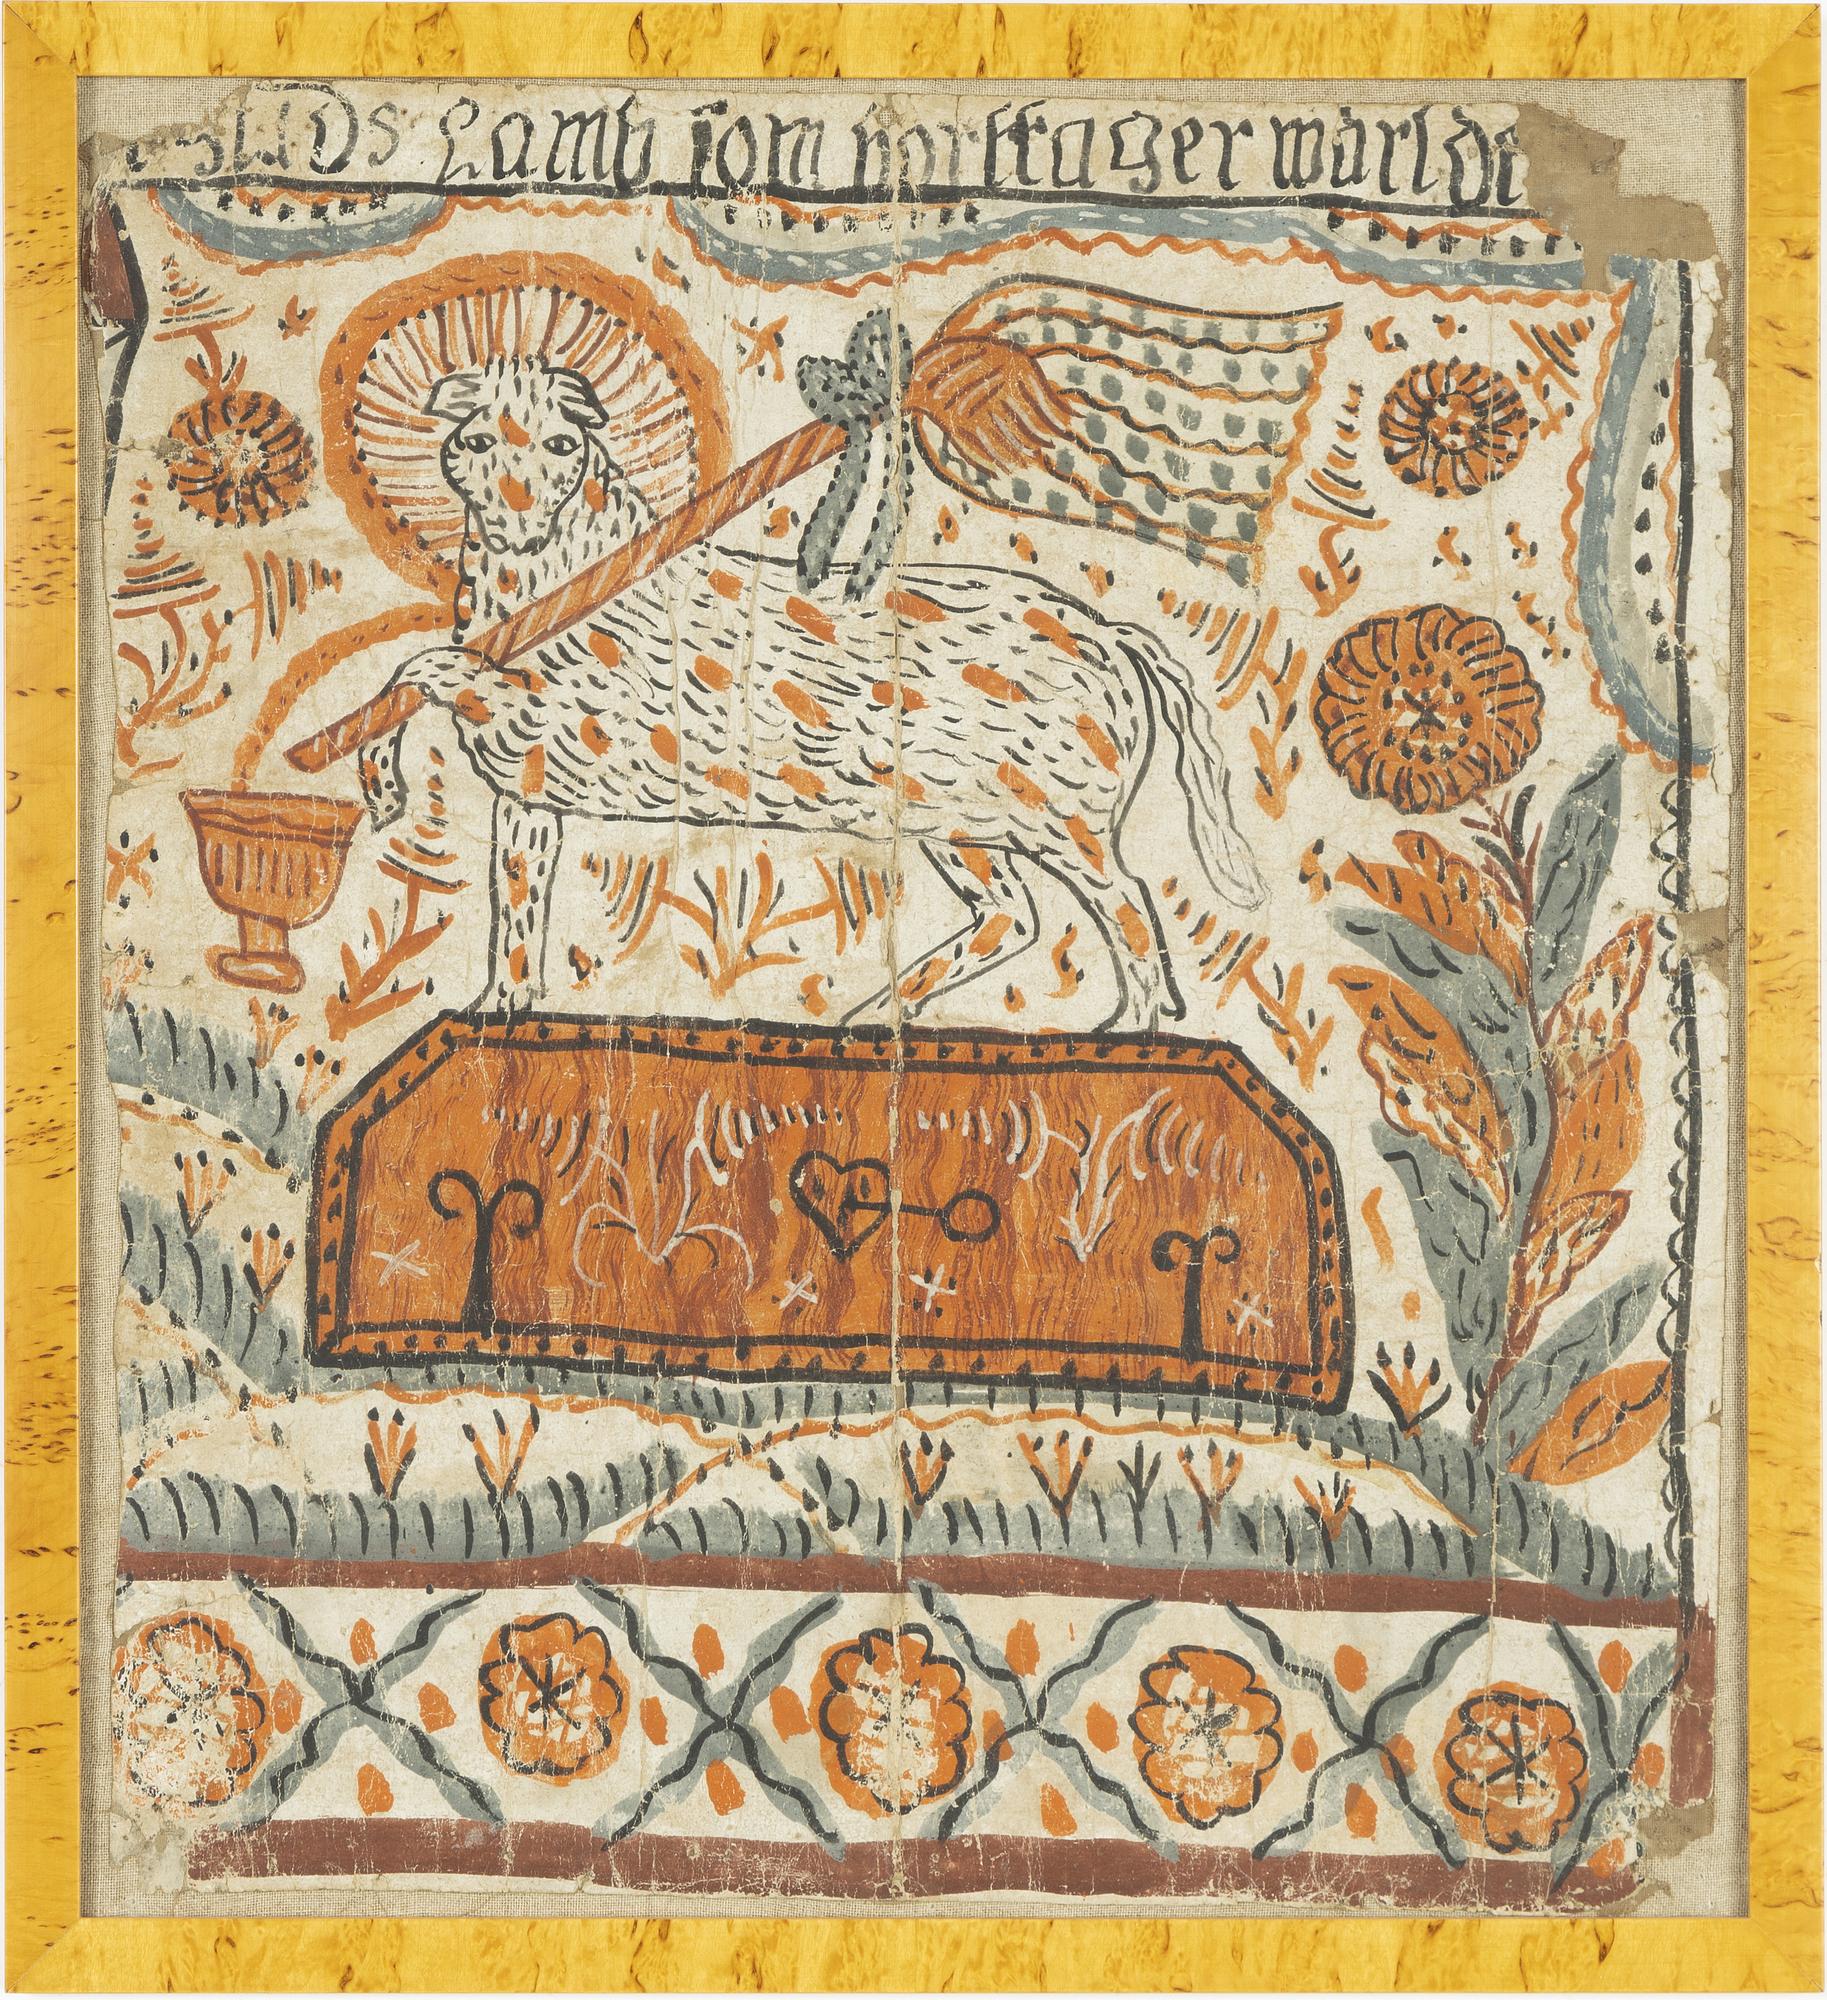 GUDs Lamb som borttager warlde